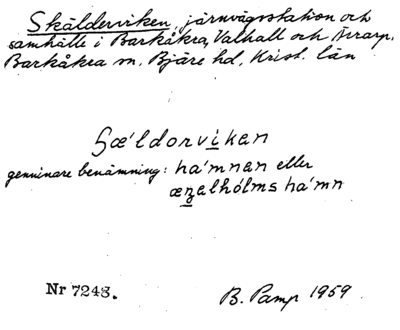 Skälderviken, järnvägsstation och
samhälle i Barkåkra, Valhall och Ärrarp,
Barkåkra sn, Bjäre hd, Krist. län
ʂæ´ldorvikan
genuinare benämning: ha´mnan eller
æȥalhólms ha´mn
Nr 7248.
B. Pamp 1959